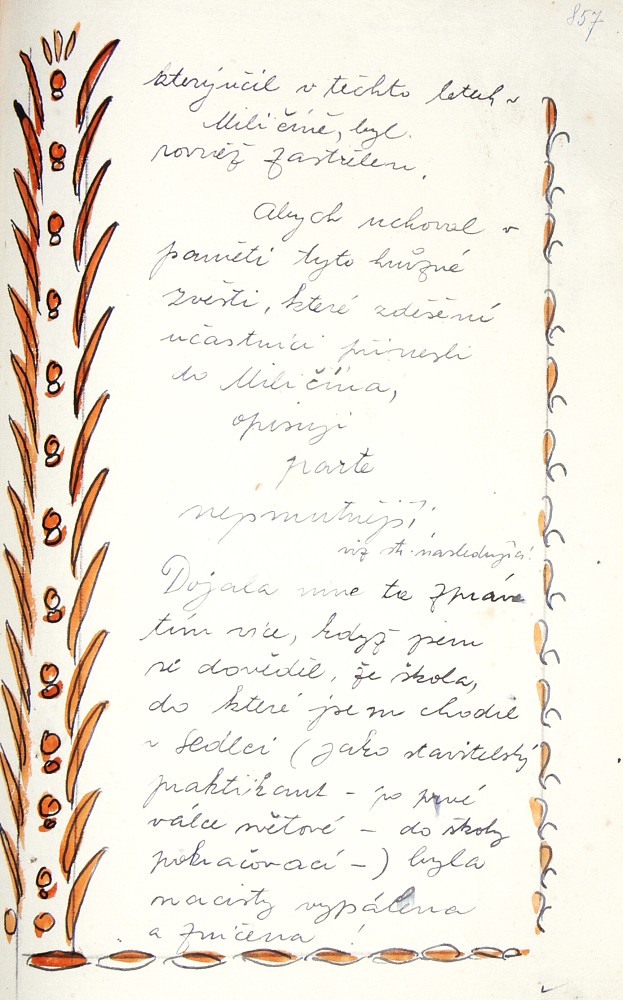 857
kterýučil v těchto letech v
Miličíně, byl.
rovněž zastřelen.
Abych uchoval v
paměti tyto hrůzné
zvěsti, které zděšení
účastníci přinesli
do Miličína,
opisuji
parte
nejsmutnější!
viz str. následující!
Dojala mne ta zpráva
tím více, když jsem
se dověděl, že škola,
do které jsem chodil
v Sedlci (jako stavitelský
praktikant - po prvé
válce světové - do školy
pokračovací -) byla
nacisty vypálena
a zničena!